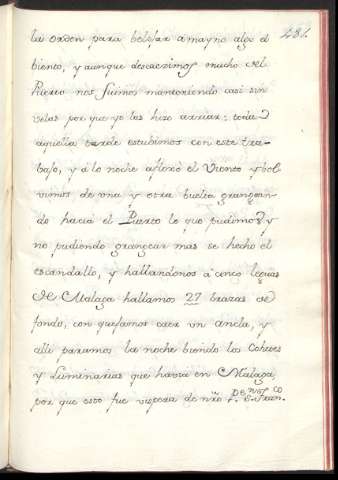 484
la orden para bolvar amayno algo el
biento, y aunque descaezimos mucho del
Puerto nos fuimos manteniendo casi sin
velas por que yo las hize arriar: toda
aquella tarde estubimos con este tra-
bajo, y a la noche afloxó el Viento y bol
vimos de una y otra buelta grangean-
do hacia el Puerto lo que pudimos, y
no pudiendo grangear mas se hecho el
escandallo, y hallandonos a cinco leguas
de Malaga hallamos 27 brazas de
fondo, con que fuimos caer un ancla, y
alli paramos la noche biendo los Cohetes
y Luminarias que havia en Malaga,
por que esto fue vispera de nro Pe. S. Franco.